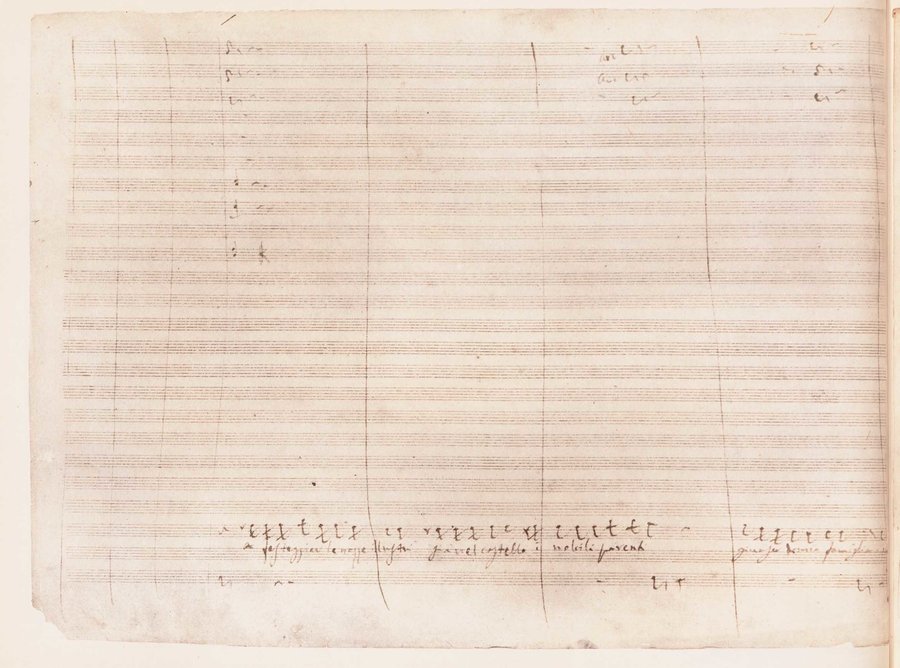 a festeggiar le nozze illustri già nel castello i nobili parenti giunser di mia famiglia